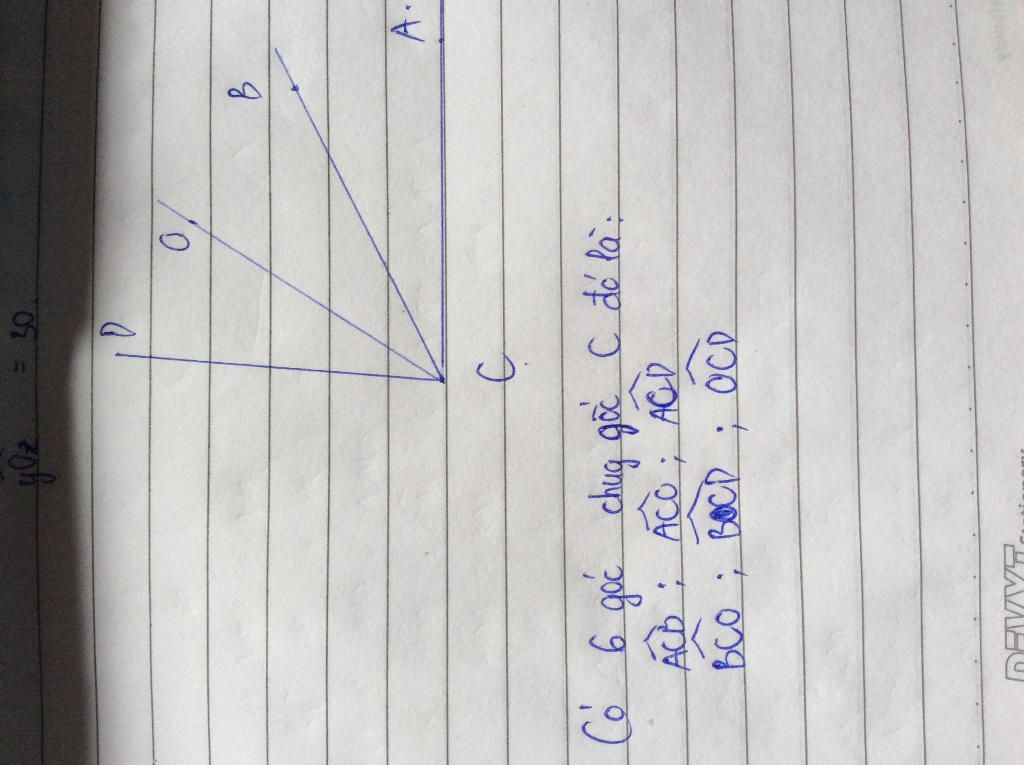 yOz = 30
D
O
B
A.
C
Có 6 góc chug gốc C đó là:
ACB; ACO; ACD
BCO; BCD; OCD